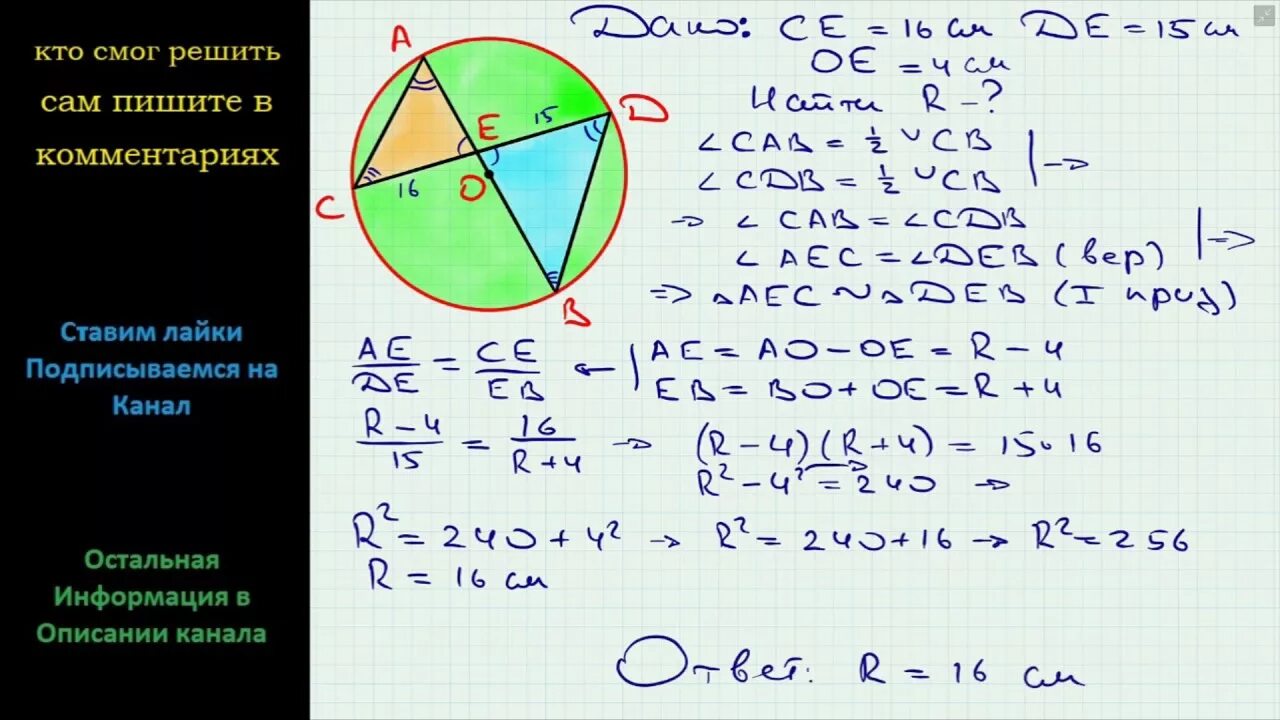 кто смог решить
сам пишите в
комментариях
Ставим лайки
Подписываемся на
Канал
Остальная
Информация в
Описании канала
A
E
15
D
C
16
O
B
Дано: CE = 16 см DE = 15 см
OE = 4 см
Найти R - ?
∠CAB = 1/2 ◡CB
∠CDB = 1/2 ◡CB
→ ∠CAB = ∠CDB
∠AEC = ∠DEB (вер)
=> △AEC ~ △DEB (I приз)
AE/DE = CE/EB ← | AE = AO - OE = R - 4
EB = BO + OE = R + 4
(R - 4)/15 = 16/(R + 4) → (R - 4)(R + 4) = 15·16
R² - 4² = 240 →
R² = 240 + 4² → R² = 240 + 16 → R² = 256
R = 16 см
Ответ: R = 16 см